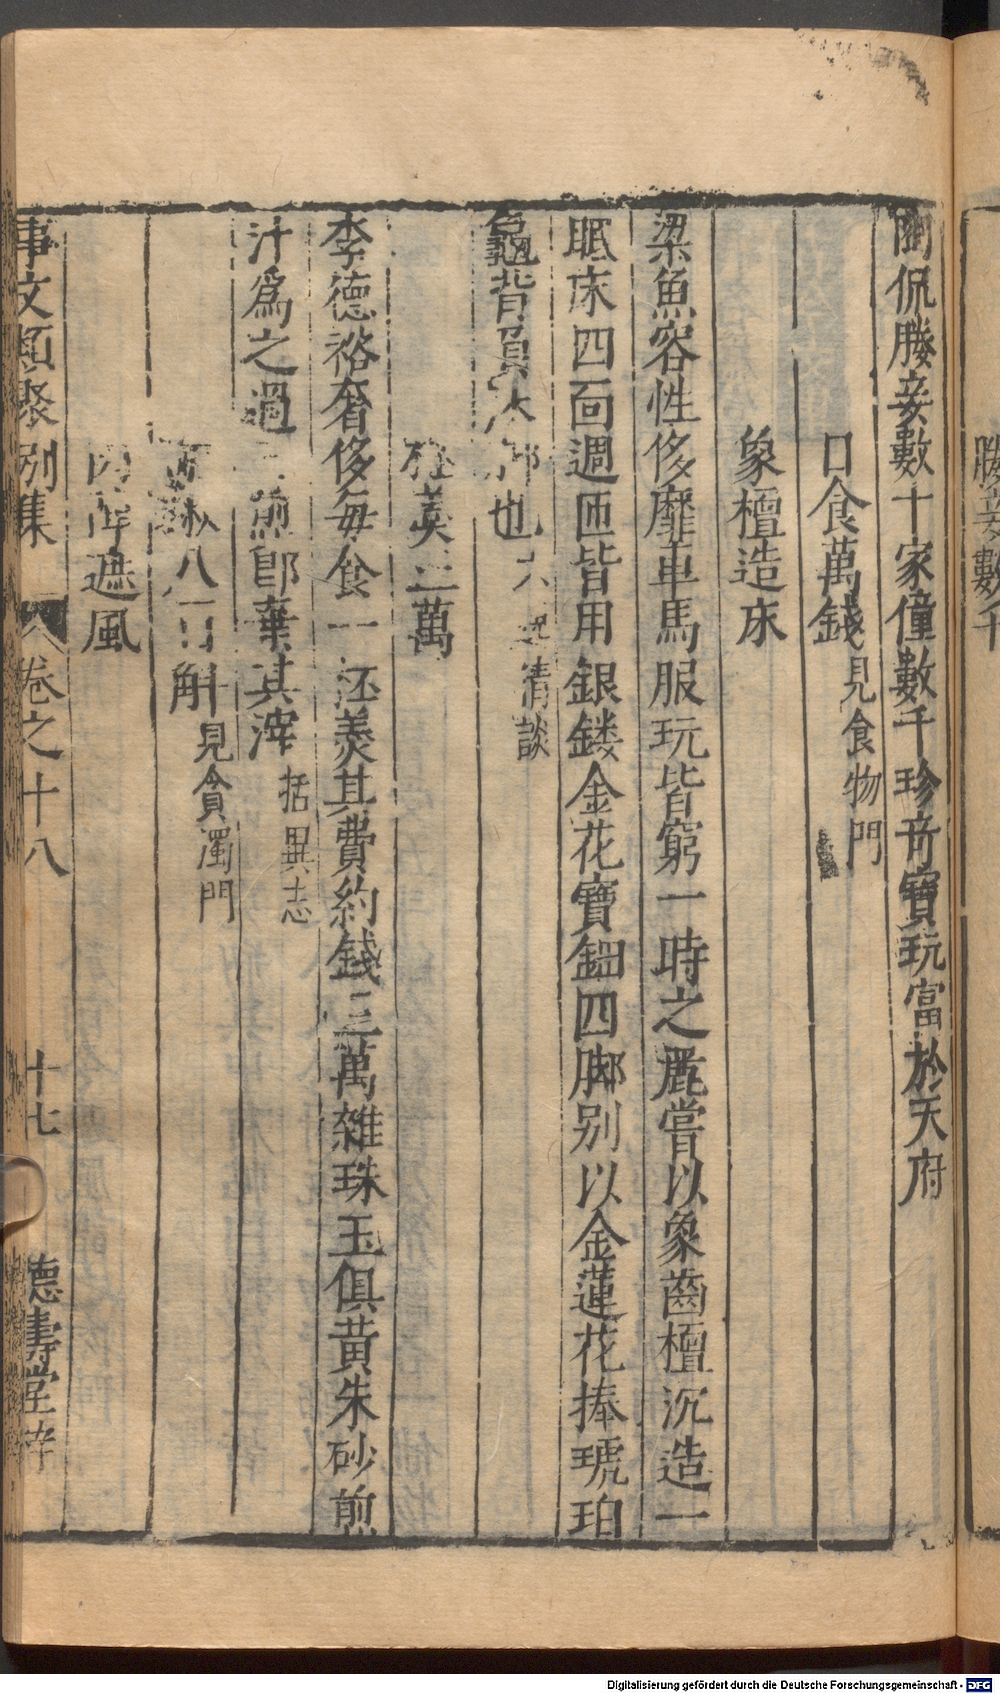 陶侃媵妾數十家僮數千珍奇寶玩富於天府
口食萬錢見食物門
象檀造床
梁魚容性侈靡車馬服玩皆窮一時之麗嘗以象齒檀沉造一
眠床四面週匝皆用銀鏤金花寶鈿四脚别以金蓮花捧琥珀
龜背負床脚也六 清談
杯羹三萬
李德裕奢侈每食一杯羮其費約錢三萬雜珠玉俱黃朱砂煎
汁爲之過三煎即棄其滓括異志
胡椒八百斛見貪濁門
肉陣遮風
事文類聚别集 卷之十八 十七 德壽堂梓
媵妾數千
Digitalisierung gefördert durch die Deutsche Forschungsgemeinschaft - DFG